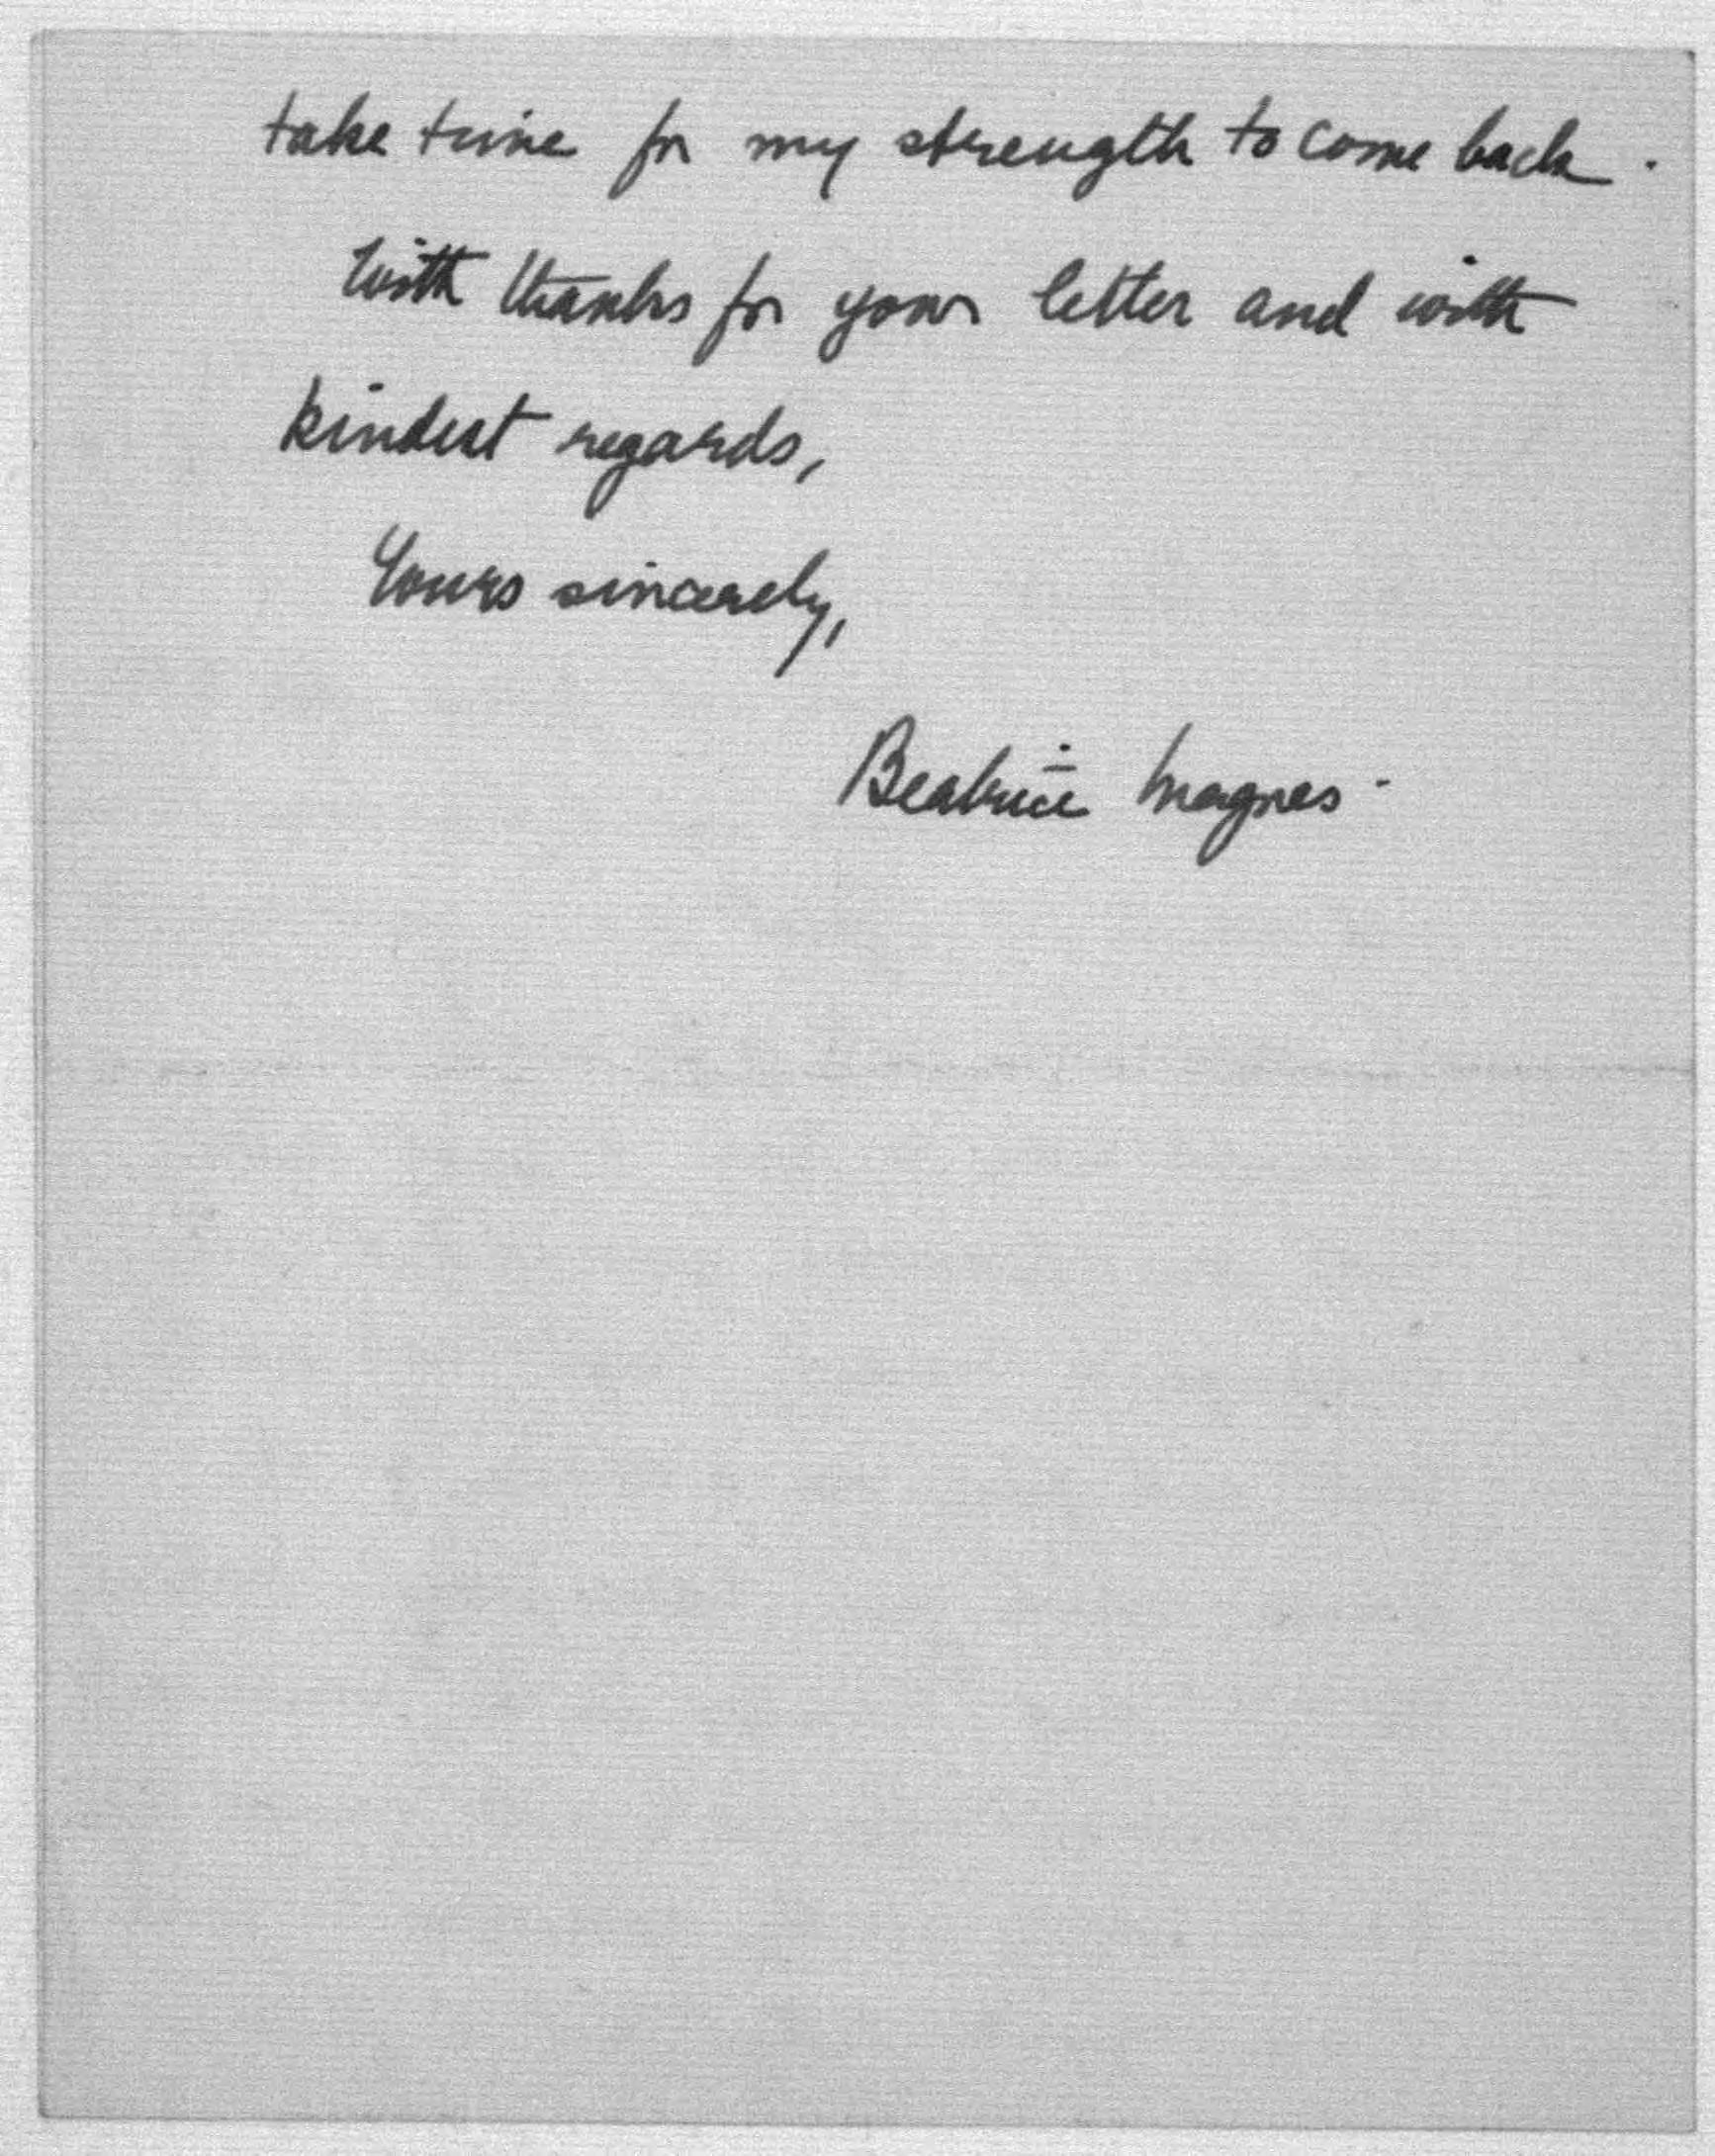 take time for my strength to come back.
With thanks for your letter and with
kindest regards,
Yours sincerely,
Beatrice Magnes.